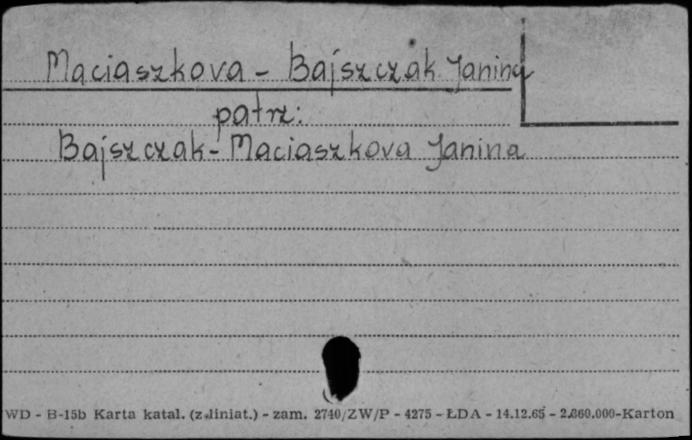 Maciaszkova - Bajszczak Janina
patrz:
Bajszczak - Maciaszkova Janina
WD - B-15b Karta katal. (z liniat.) - zam. 2740/ZW/P - 4275 - ŁDA - 14.12.65 - 2.860.000-Karton